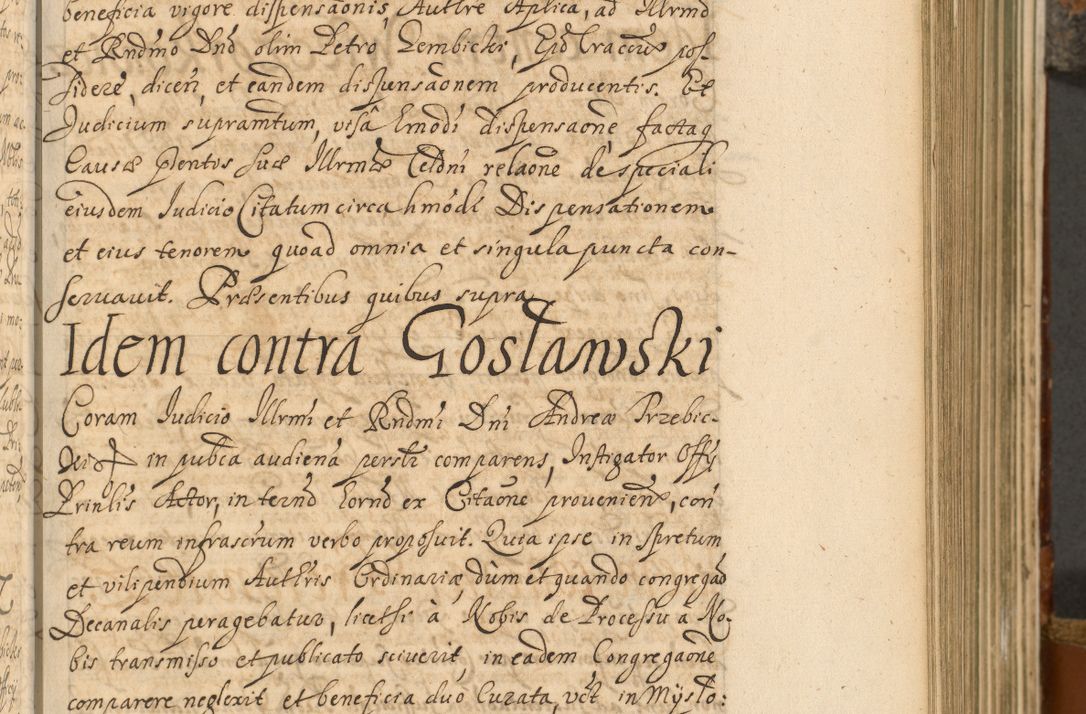 beneficia vigore dispensaonis Auttre Aplica, ad Illrmd
et Rndmo Dnd olim Petro Gembicki, Epd Craccu pos-
sidere, dicen, et eandem dispensaonem producentis. Et
Judicium supramtum, visa hmodi dispensaone factaq
Causæ ptentos suæ Illrmæ Celdni relaone de speciali
eiusdem Iudicio Citatum circa hmodi Dispensationem
et eius tenorem quoad omnia et singula puncta con-
seruauit. Præsentibus quibus supra
Idem contra Gosławski
Coram Iudicio Illrmi et Rndmi Dni Andreæ Trzebic-
in pubca audiena persti comparens, Instigator Offy
Prinlis Actor, in ternd hornd ex Citaone provenien, con
tra reum infrascrum verbo proposuit. Quia ipse in spretum
et vilipendium Auttris Ordinariæ, dum et quando congregao
Decanalis peragebatur, licet si à Nobis de Processu à No-
bis transmisso et publicato sciuerit, in eadem Congregaone
comparere neglexit et beneficia duo Curata, vct in Mysło: